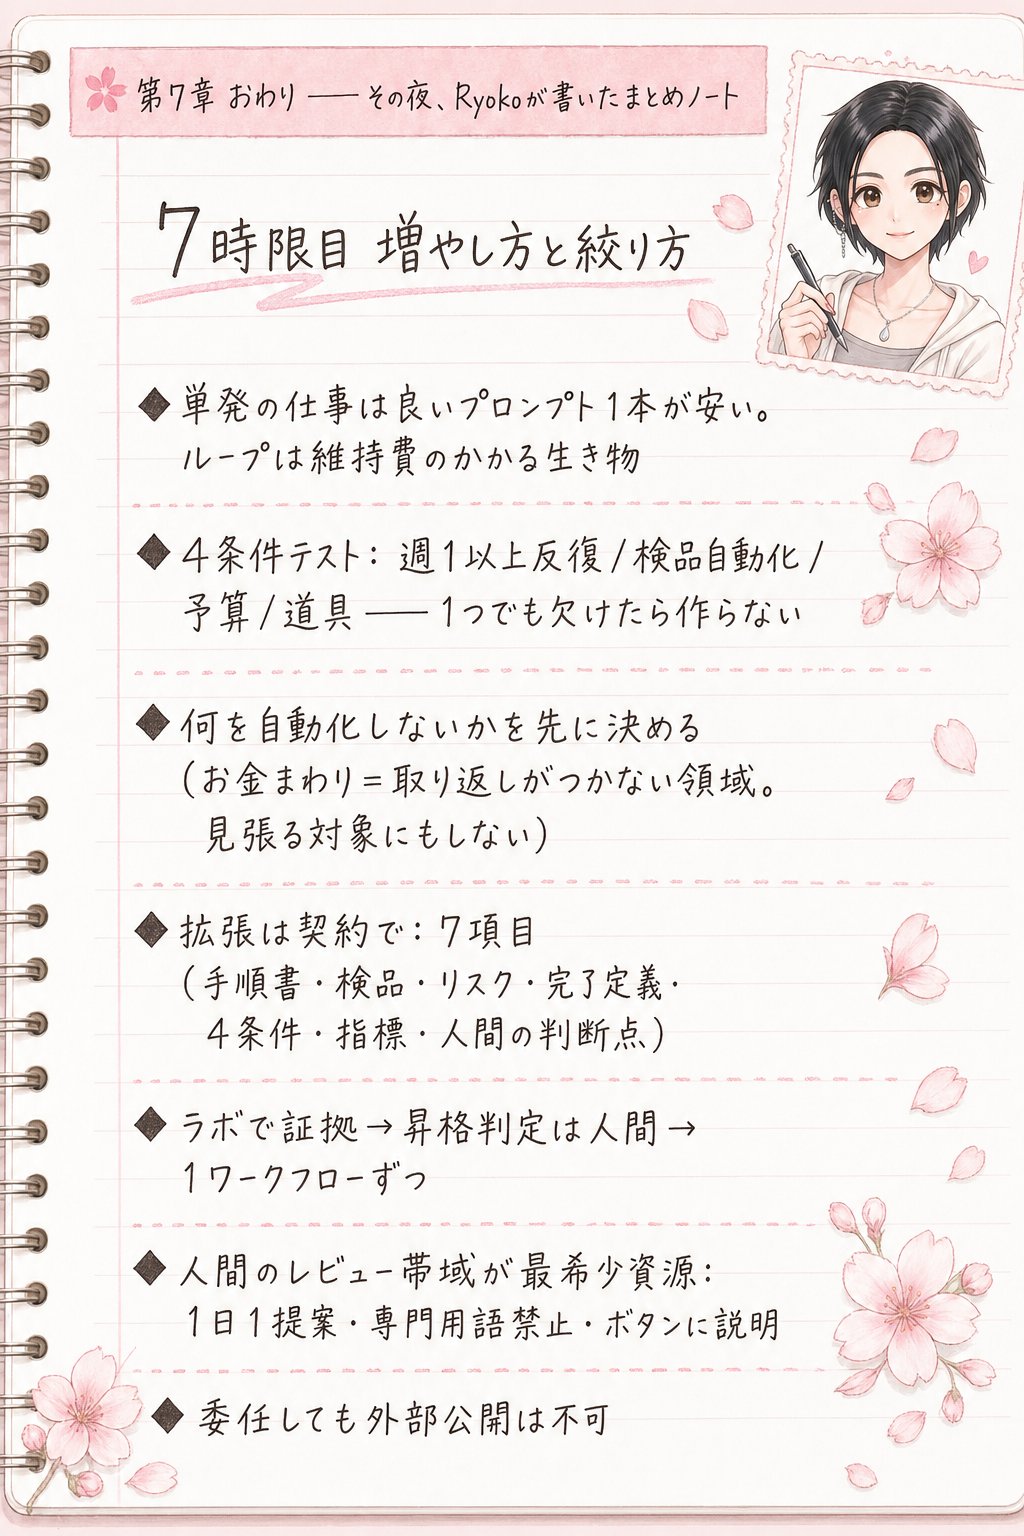 第7章 おわり —— その夜、Ryokoが書いたまとめノート
7時限目 増やし方と絞り方
◆単発の仕事は良いプロンプト1本が安い。
ループは維持費のかかる生き物
◆4条件テスト：週1以上反復/検品自動化/
予算/道具 —— 1つでも欠けたら作らない
◆何を自動化しないかを先に決める
(お金まわり=取り返しがつかない領域。
見張る対象にもしない)
◆拡張は契約で：7項目
(手順書・検品・リスク・完了定義・
4条件・指標・人間の判断点)
◆ラボで証拠→昇格判定は人間→
1ワークフローずつ
◆人間のレビュー帯域が最希少資源：
1日1提案・専門用語禁止・ボタンに説明
◆委任しても外部公開は不可